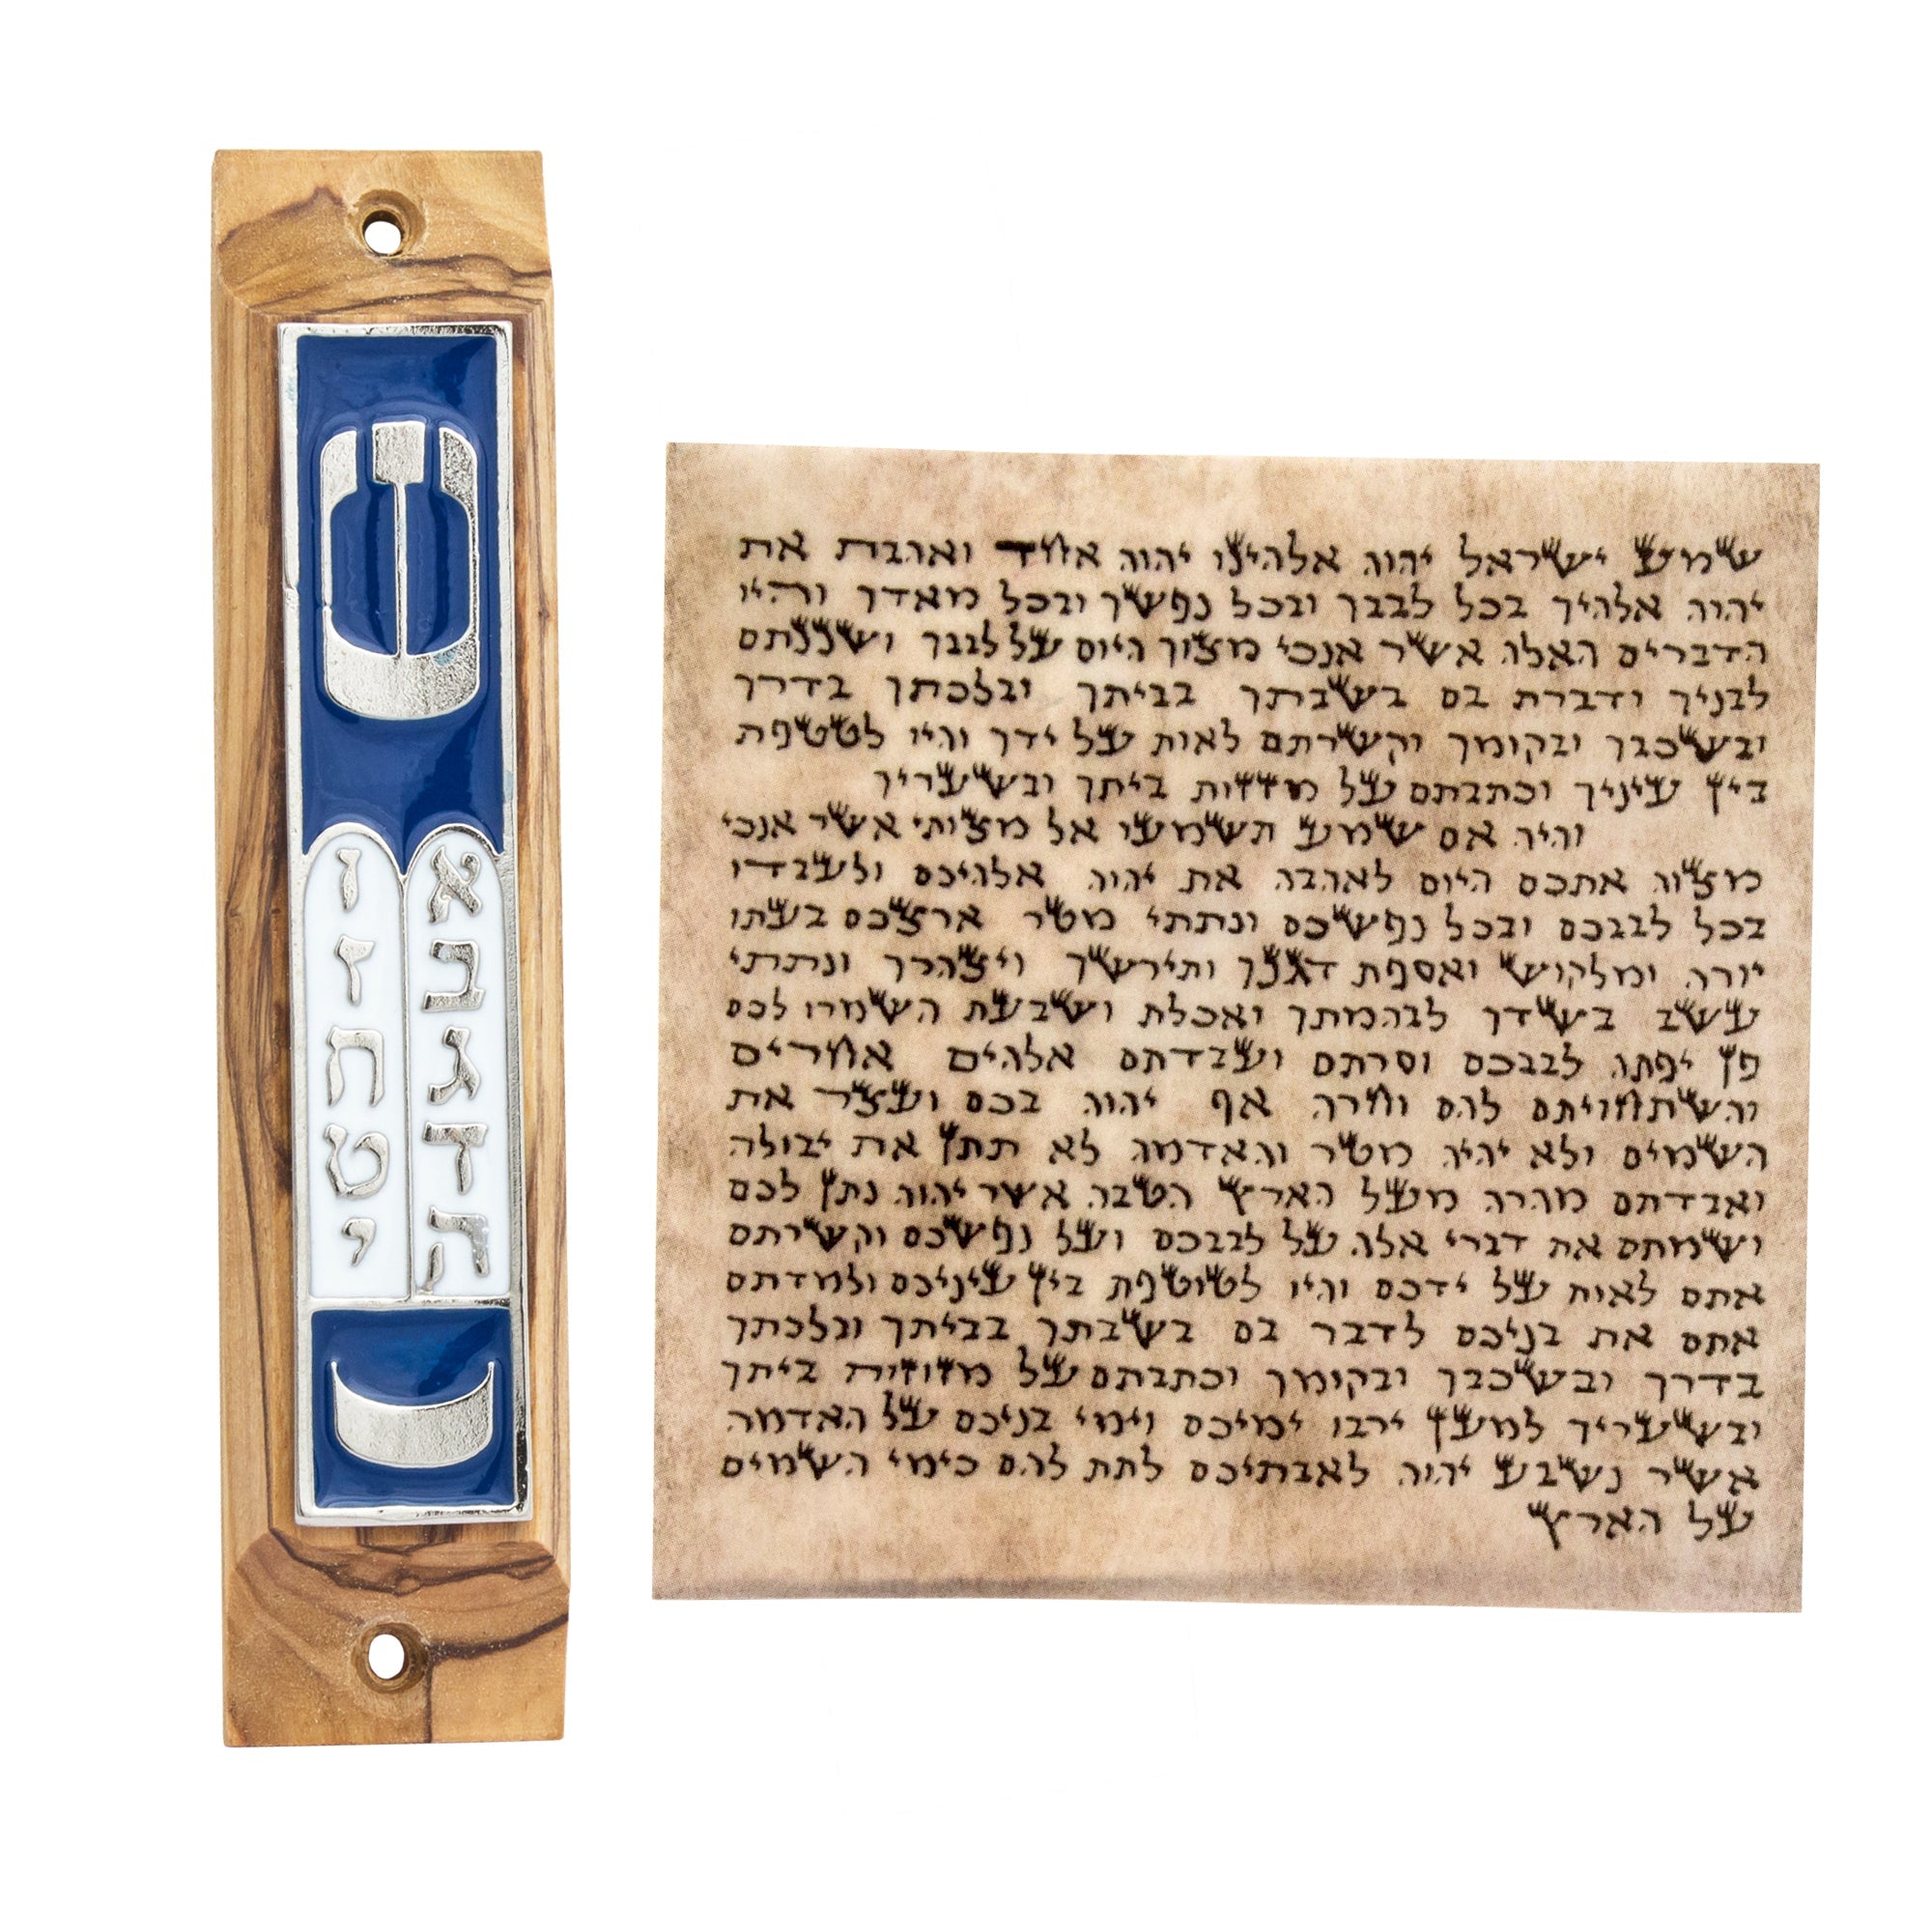 ש
א
ב
ג
ד
ה
ו
ז
ח
ט
י
שמע ישראל יהוה אלהינו יהוה אחד ואהבת את
יהוה אלהיך בכל לבבך ובכל נפשך ובכל מאדך והיו
הדברים האלה אשר אנכי מצוך היום על לבבך ושננתם
לבניך ודברת בם בשבתך בביתך ובלכתך בדרך
ובשכבך ובקומך וקשרתם לאות על ידך והיו לטטפת
בין עיניך וכתבתם על מזזות ביתך ובשעריך
והיה אם שמע תשמעו אל מצותי אשר אנכי
מצוה אתכם היום לאהבה את יהוה אלהיכם ולעבדו
בכל לבבכם ובכל נפשכם ונתתי מטר ארצכם בעתו
יורה ומלקוש ואספת דגנך ותירשך ויצהרך ונתתי
עשב בשדך לבהמתך ואכלת ושבעת השמרו לכם
פן יפתה לבבכם וסרתם ועבדתם אלהים אחרים
והשתחויתם להם וחרה אף יהוה בכם ועצר את
השמים ולא יהיה מטר והאדמה לא תתן את יבולה
ואבדתם מהרה מעל הארץ הטבה אשר יהוה נתן לכם
ושמתם את דברי אלה על לבבכם ועל נפשכם וקשרתם
אתם לאות על ידכם והיו לטוטפת בין עיניכם ולמדתם
אתם את בניכם לדבר בם בשבתך בביתך ובלכתך
בדרך ובשכבך ובקומך וכתבתם על מזוזות ביתך
ובשעריך למען ירבו ימיכם וימי בניכם על האדמה
אשר נשבע יהוה לאבתיכם לתת להם כימי השמים
על הארץ